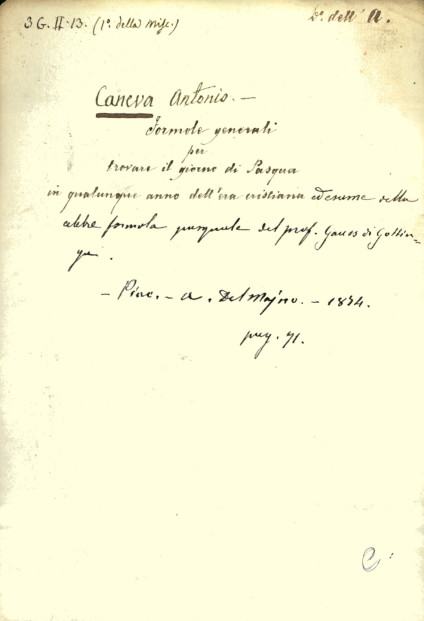 3 G. II. 13. (1º della Misc.)
Dº dell' A.
Caneva Antonio. —
Formole generali
per
trovare il giorno di Pasqua
in qualunque anno dell'era cristiana ed esame della
celebre formola pasquale del prof. Gauss di Gottin=
ga.
— Piac. — A. Del Majno. — 1874.
pag. 71.